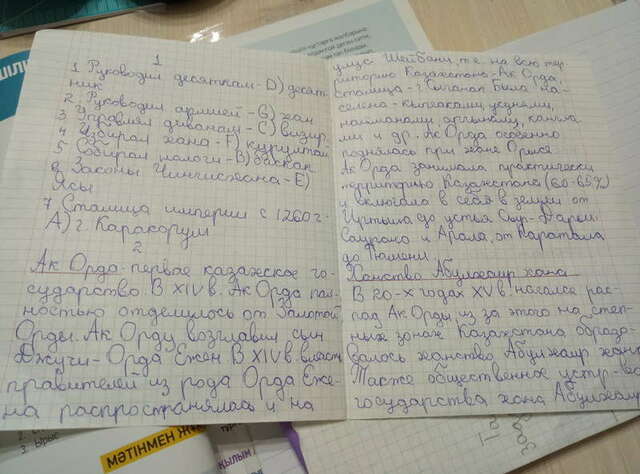 1
1 Руководил десятками - D) десят-
ник
2 Руководил армией - G) хан
3 Управлял диваном - C) визирь
4 Избирал хана - F) курултай
5 Собирал налоги - B) баскак
6 Законы Чингисхана - E)
Ясы
7 Столица империи с 1260 г -
A) г. Каракорум
2
Ак Орда - первое казахское го-
сударство В XIV в. Ак Орда пол-
ностью отделилось от Золотой
Орды. Ак Орду возглавил сын
Джучи - Орда Ежен В XIV в. власть
правителей из рода Орда Еже-
на распространялась и на
улус Шейбани, т.е. на всю тер-
риторию Казахстана - Ак Орда,
Столица - г. Сыганак Была на-
селена - кыпчаками, уснями,
найманами аргынами, канглы-
ми и др. Ак Орда особенно
поднялась при хане Орысе.
Ак Орда занимала практически
территорию Казахстана (60-65%)
и включала в себя в земли от
Иртыша до устья Сыр-Дарьи
Саурана и Арала, от Каратала
до Тюмени
Ханство Абулхаир хана
В 20-х годах XV в. начался рас-
пад Ак Орды из за этого на степ-
ных зонах Казахстана образо-
валось ханство Абулхаир хана
Также общественное устр-во
государства хана Абулхаир
3. Ырыс
МӘТІНМЕН